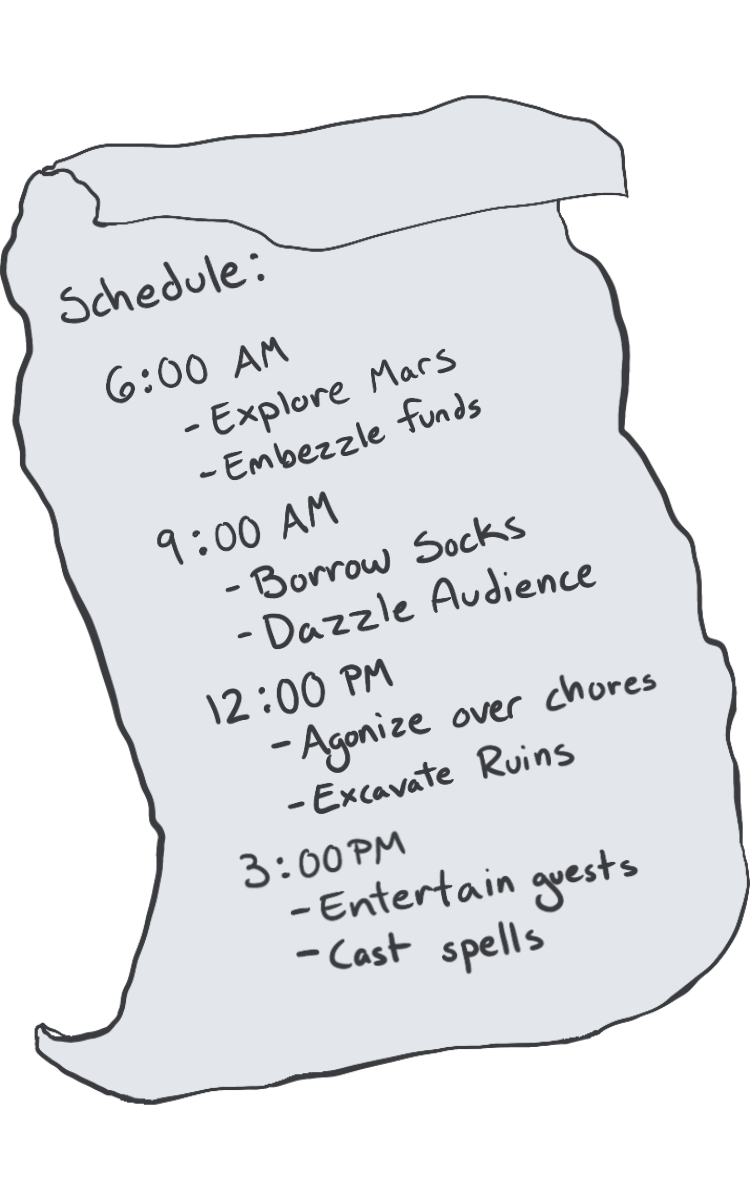 Schedule:
6:00 AM
- Explore Mars
- Embezzle funds
9:00 AM
- Borrow Socks
- Dazzle Audience
12:00 PM
- Agonize over chores
- Excavate Ruins
3:00 PM
- Entertain guests
- Cast spells